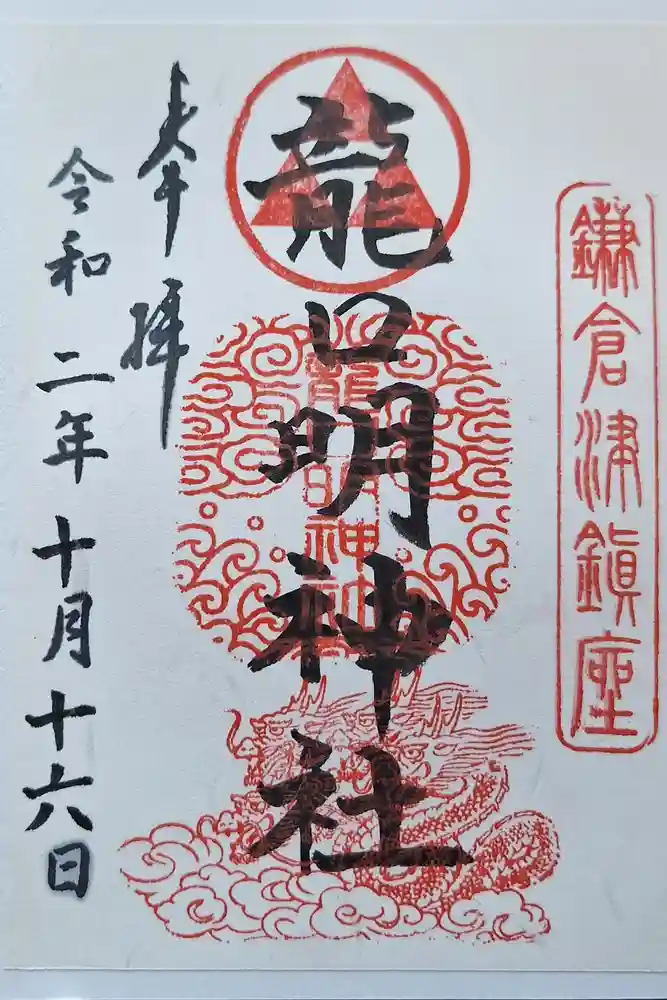 鎌倉津鎮座
龍口明神社
龍口明神社
奉拝
令和二年十月十六日